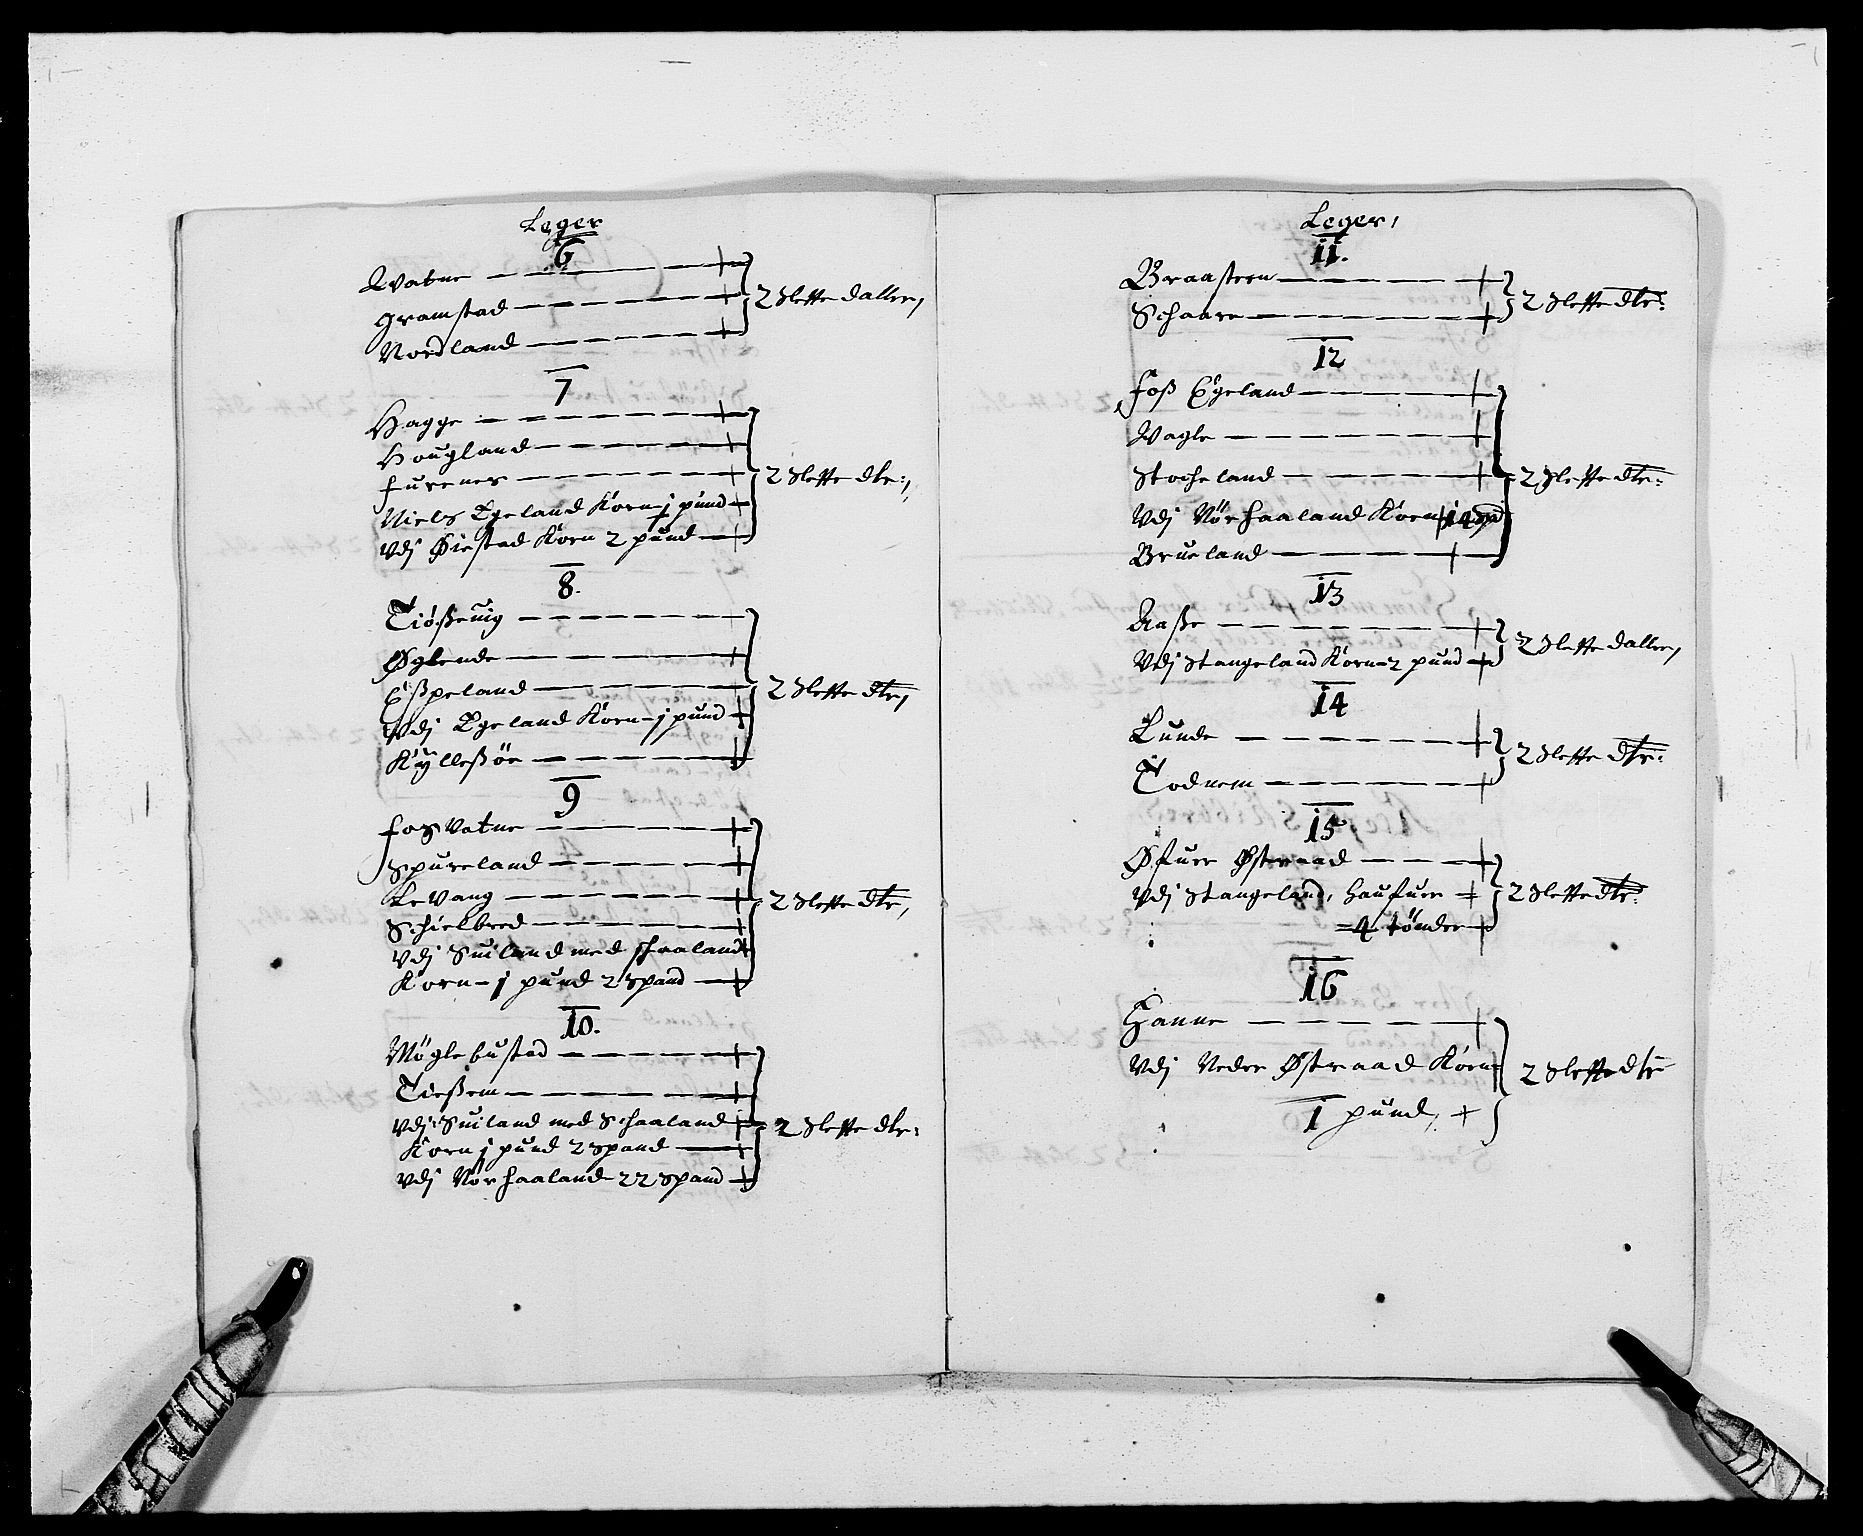 Leger
6
Watne
Gramstad
Nordland
2 Slette daller,
7
Hagge
Hougland
Furenes
Niels Egeland Korn - j pund
Vdj Øiestad Korn 2 pund
2 Slette dlr:,
8.
Tiøßeuig
Øglende
Eßpeland
Vdj Egeland Korn - j pund
Kÿlleßöe
2 Slette dlr,
9
Fosvatne
Spureland
Levang
Schielbred
Vdj Suiland med schaaland
Korn - j pund 2 spand
2 Slette dlr,
10.
Möglebustad
Tießem
Vdj Suiland med Schaaland
Korn j pund 2 spand
Vdj Nörhaaland 22 spand
2 Slette dlr:
Leger,
11.
Braasteen
Schaare
2 Slette dlr:
12
Foß Eÿeland
Vagle
Stocheland
Vdj Nörhaaland Korn
Brueland
2 Slette dlr:
13
Aaße
Vdj Stangeland Korn - 2 pund
2 Slette daller,
14
Lunde
Todnem
2 Slette dlr:
15
Øfuer Østraad
Vdj Stangeland, Haufuer
4 tönder
2 Slette dlr:
16
Hanne
Vdj Neder Østraad Korn
1 pund,
2 Slette dlr